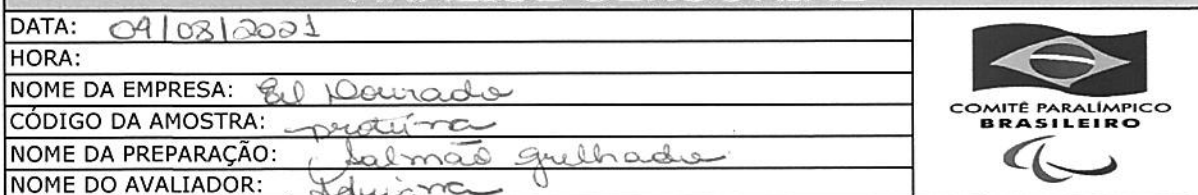 DATA: 09/08/2021
HORA:
NOME DA EMPRESA: Dourado
CÓDIGO DA AMOSTRA: proteína
NOME DA PREPARAÇÃO: Salmão grelhado
NOME DO AVALIADOR:
COMITÊ PARALÍMPICO
BRASILEIRO